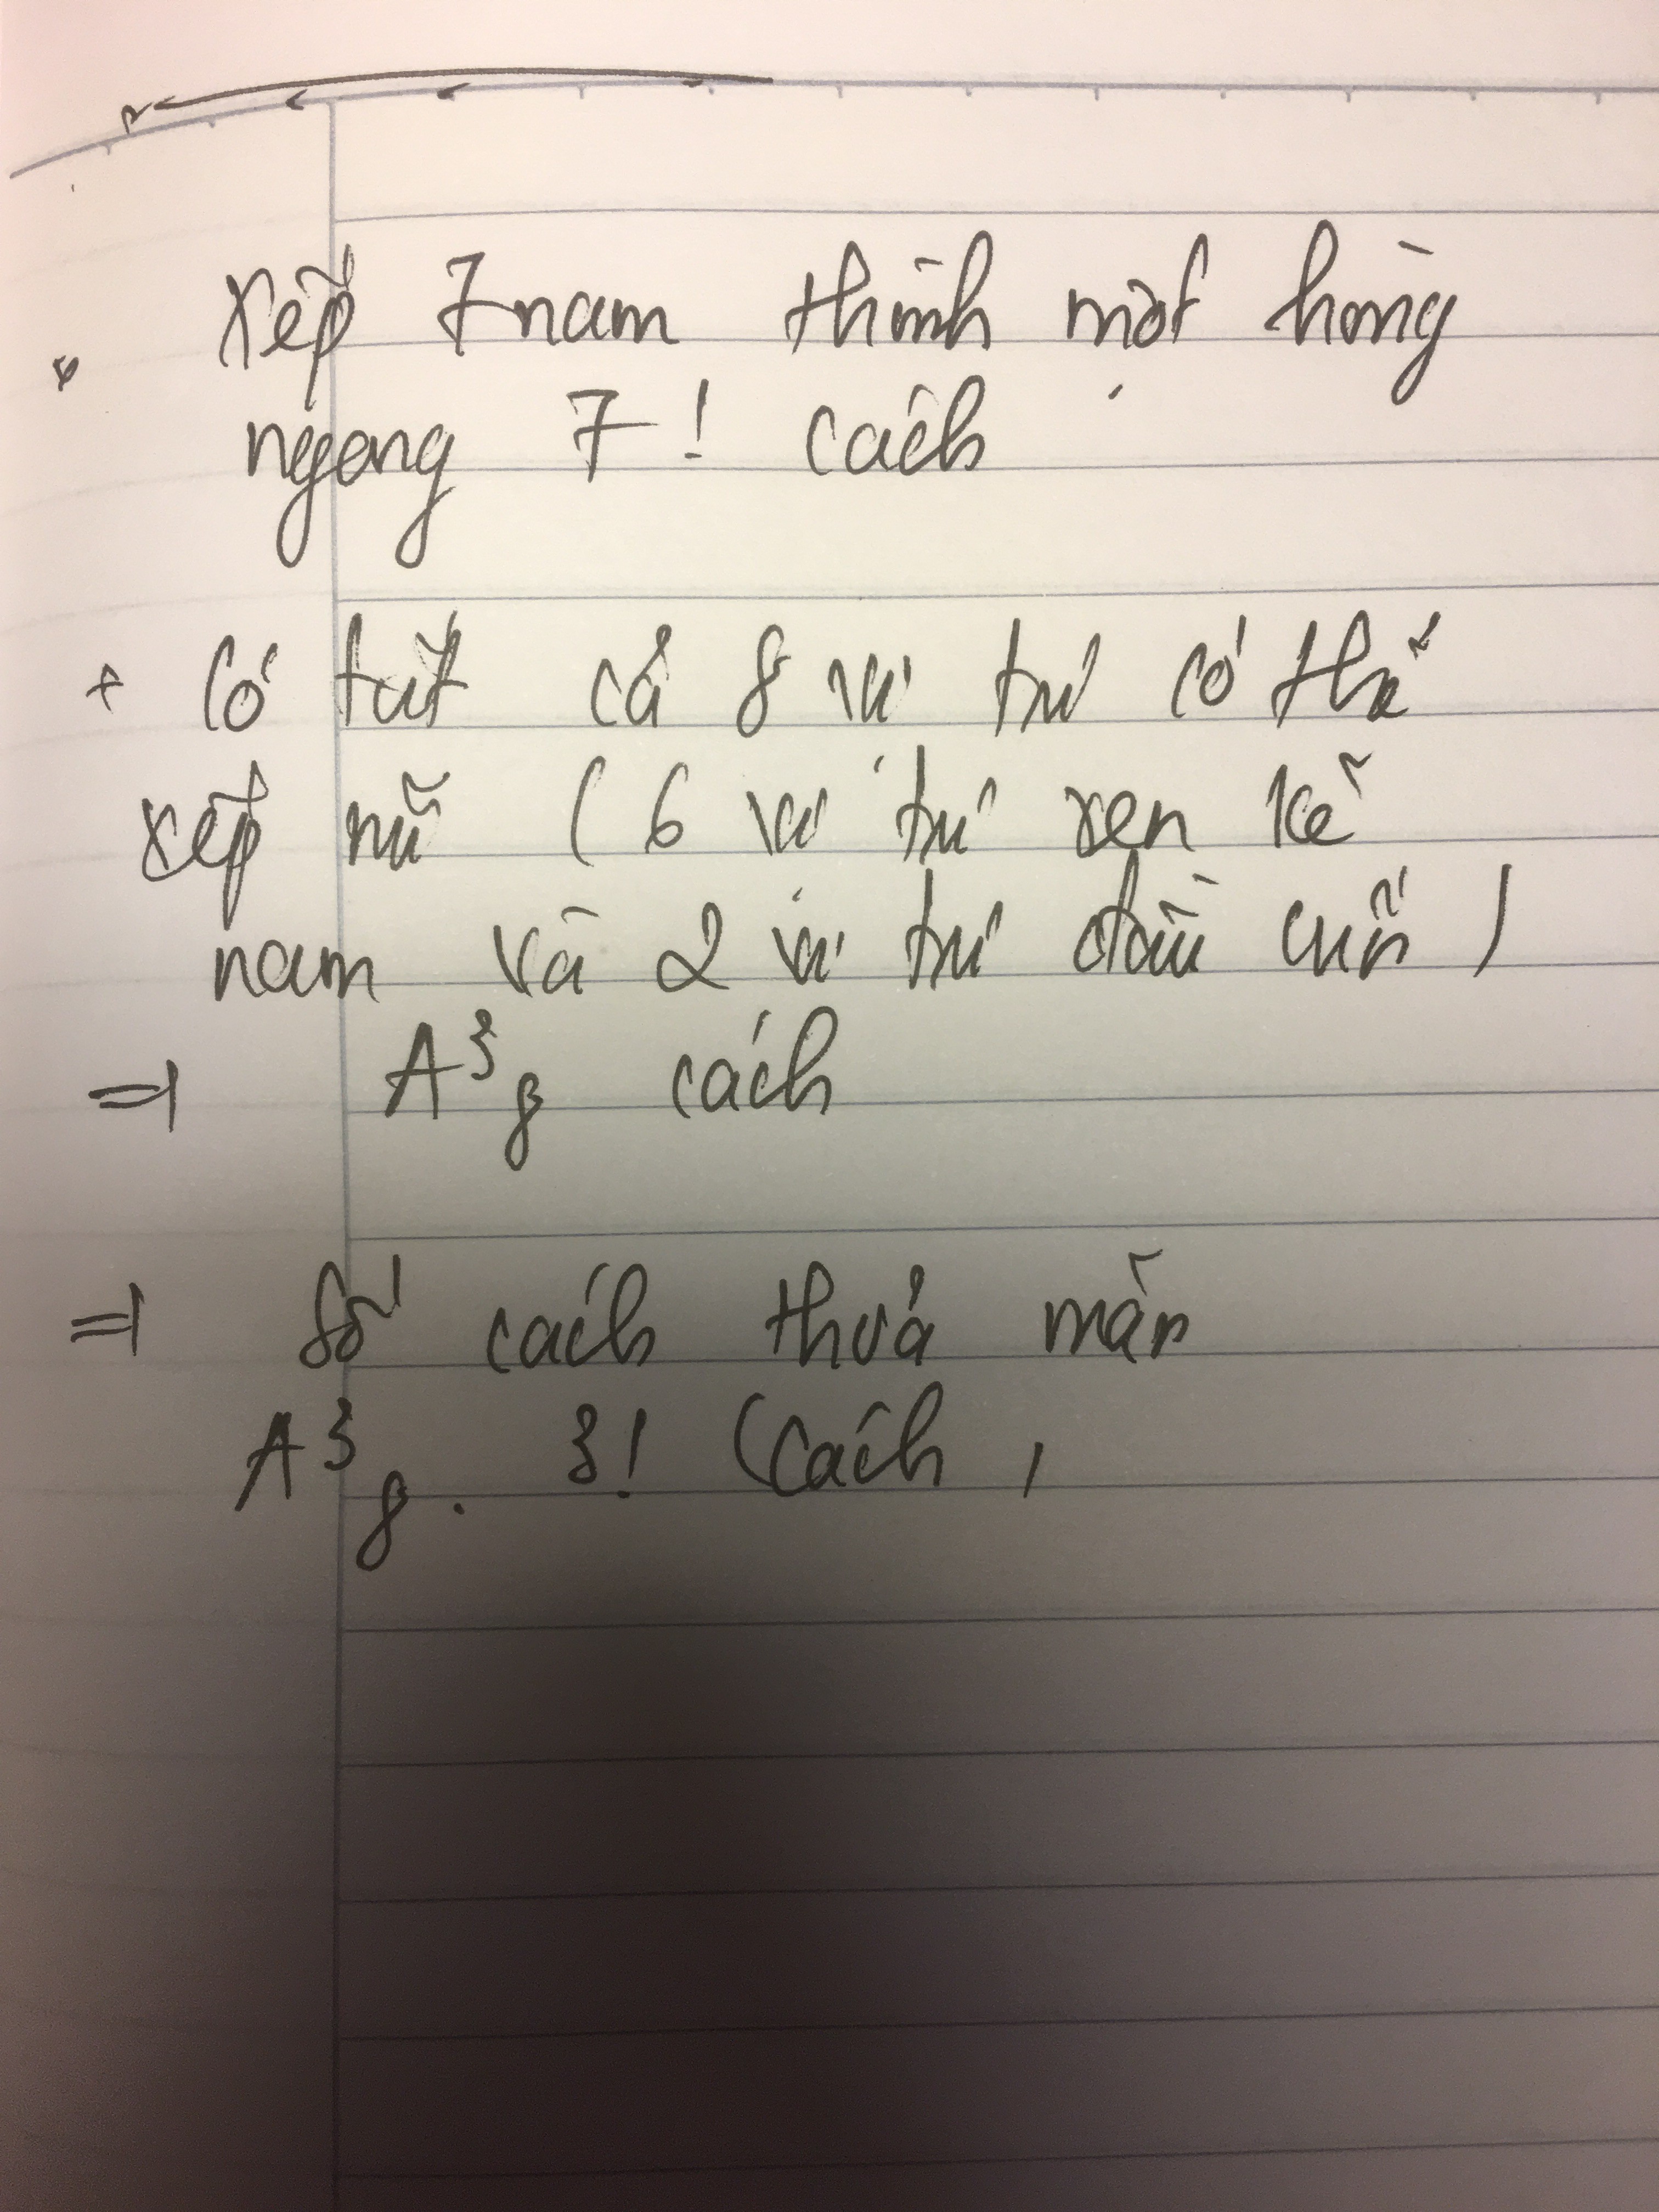 Xếp 7 nam thành một hàng
ngang 7! cách
+ Có tất cả 8 vị trí có thể
xếp nữ ( 6 vị trí xen kẽ
nam và 2 vị trí đầu cuối )
=> A³₈ cách
=> Số cách thoả mãn
A³₈ . 3! cách